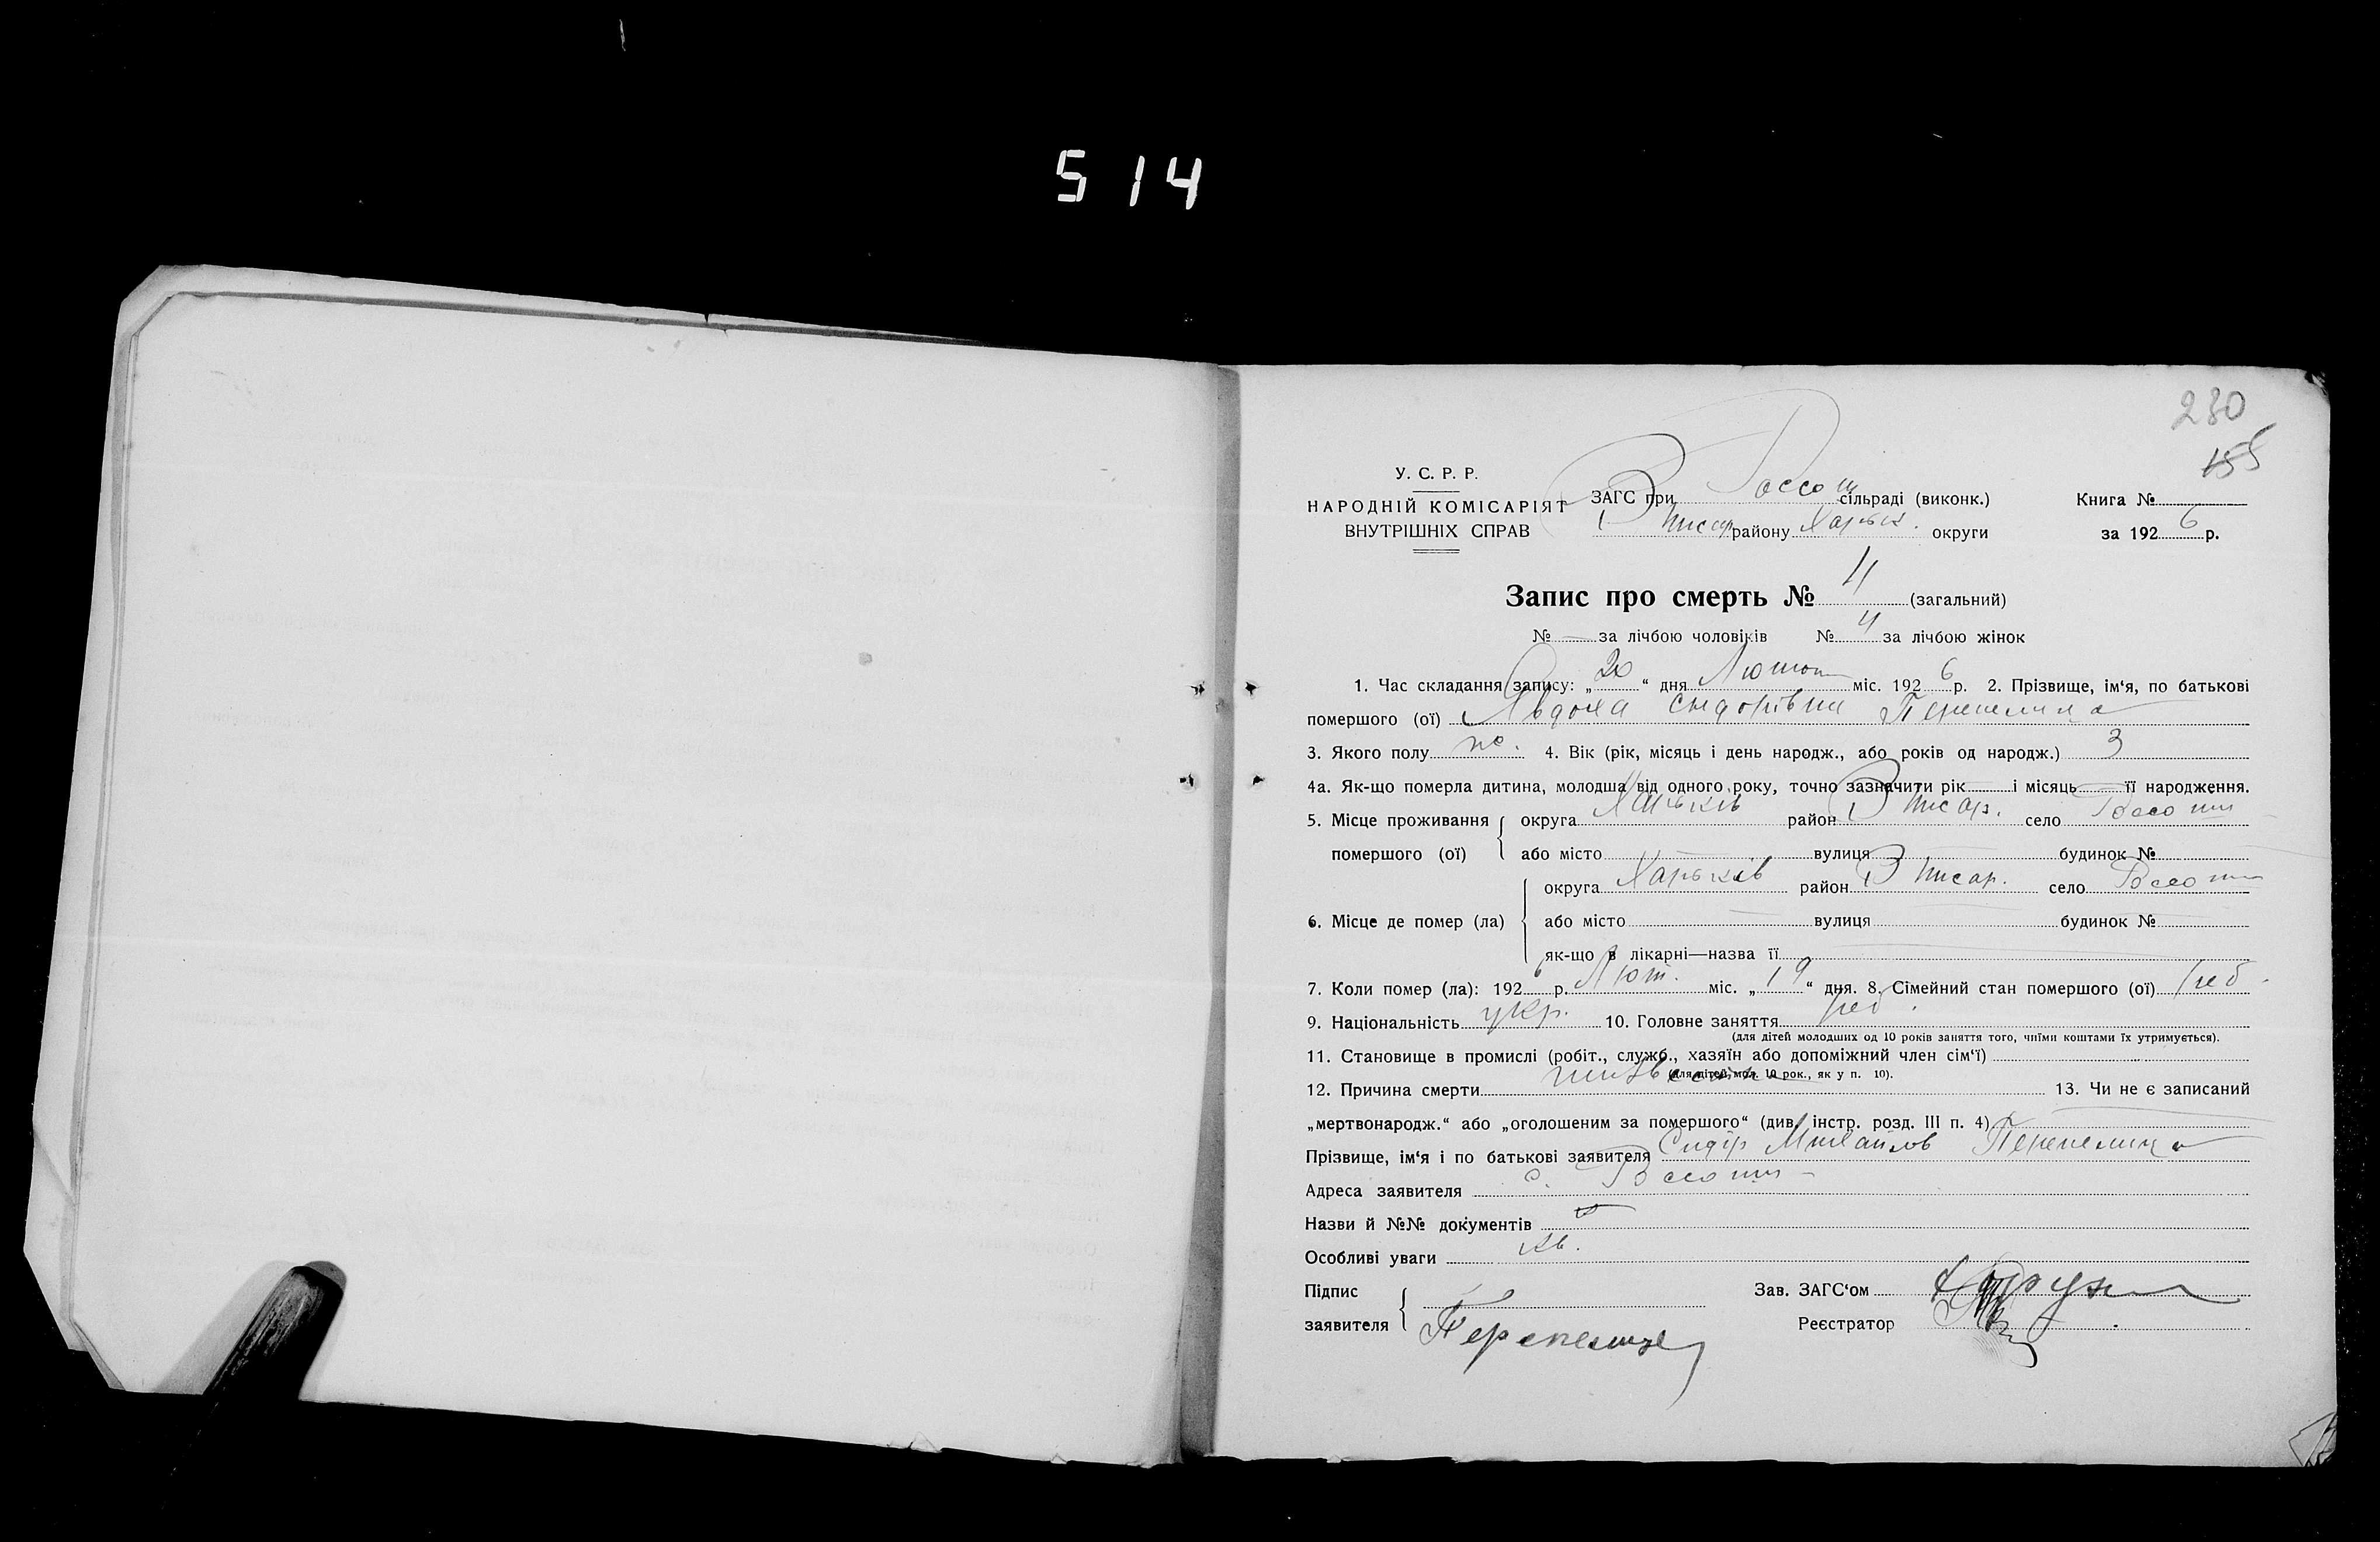 514
230
155
У. С. Р. Р.
НАРОДНІЙ КОМІСАРІЯТ
ВНУТРІШНІХ СПРАВ
ЗАГС при Россош сільраді (виконк.)
В Писар району Харьк. округи
Книга №
за 1926 р.
Запис про смерть № 11 (загальний)
№ — за лічбою чоловіків № 4 за лічбою жінок
1. Час складання запису: „20“ дня Лютого міс. 1926 р. 2. Прізвище, ім‘я, по батькові
помершого (ої) Явдоха Сидорівна Перепелица
3. Якого полу жс. 4. Вік (рік, місяць і день народж., або років од народж.) 3
4а. Як-що померла дитина, молодша від одного року, точно зазначити рік — і місяць — її народження.
5. Місце проживання округа Харьків район В Писар. село Россоши
помершого (ої) або місто — вулиця — будинок №
округа Харьків район В Писар. село Россоши
6. Місце де помер (ла) або місто — вулиця — будинок №
як-що в лікарні—назва її —
7. Коли помер (ла): 1926 р. Лют. міс. „19“ дня. 8. Сімейний стан помершого (ої)
9. Національність укр. 10. Головне заняття
(для дітей молодших од 10 років заняття того, чиїми коштами їх утримується).
11. Становище в промислі (робіт., служб., хазяїн або допоміжний член сім‘ї)
(для дітей, мол. 10 рок., як у п. 10).
12. Причина смерти 13. Чи не є записаний
„мертвонародж.“ або „оголошеним за помершого“ (див. інстр. розд. III п. 4) —
Прізвище, ім‘я і по батькові заявителя Сидір Михайлов Перепелица
Адреса заявителя с. Россоши
Назви й №№ документів
Особливі уваги
Підпис
заявителя Перепелица
Зав. ЗАГС‘ом
Реєстратор